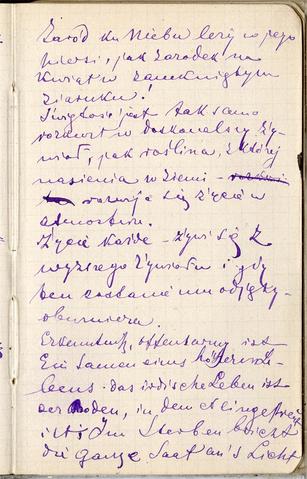 Zaród ku Niebu leży w jego
piersi, jak zarodek na
kwiat w zamkniętym
ziarnku!
Świętość jest tak samo
rozwort w doskonalszy ży-
wioł, jak roślina, z której
nasienia w ziemi –
rozwija się życie w
atmosferze.
Życie każde – żywi się z
wyższego żywiołu i gdy
ten zostanie mu odjęty –
obumiera.
Erkenntniß, offenbarung ist
Ein Samen eines höheren Le-
bens – das irdische Leben ist
der Boden, in dem er eingestreut
ist. Im Sterben bricht
die ganze Saat an's Licht